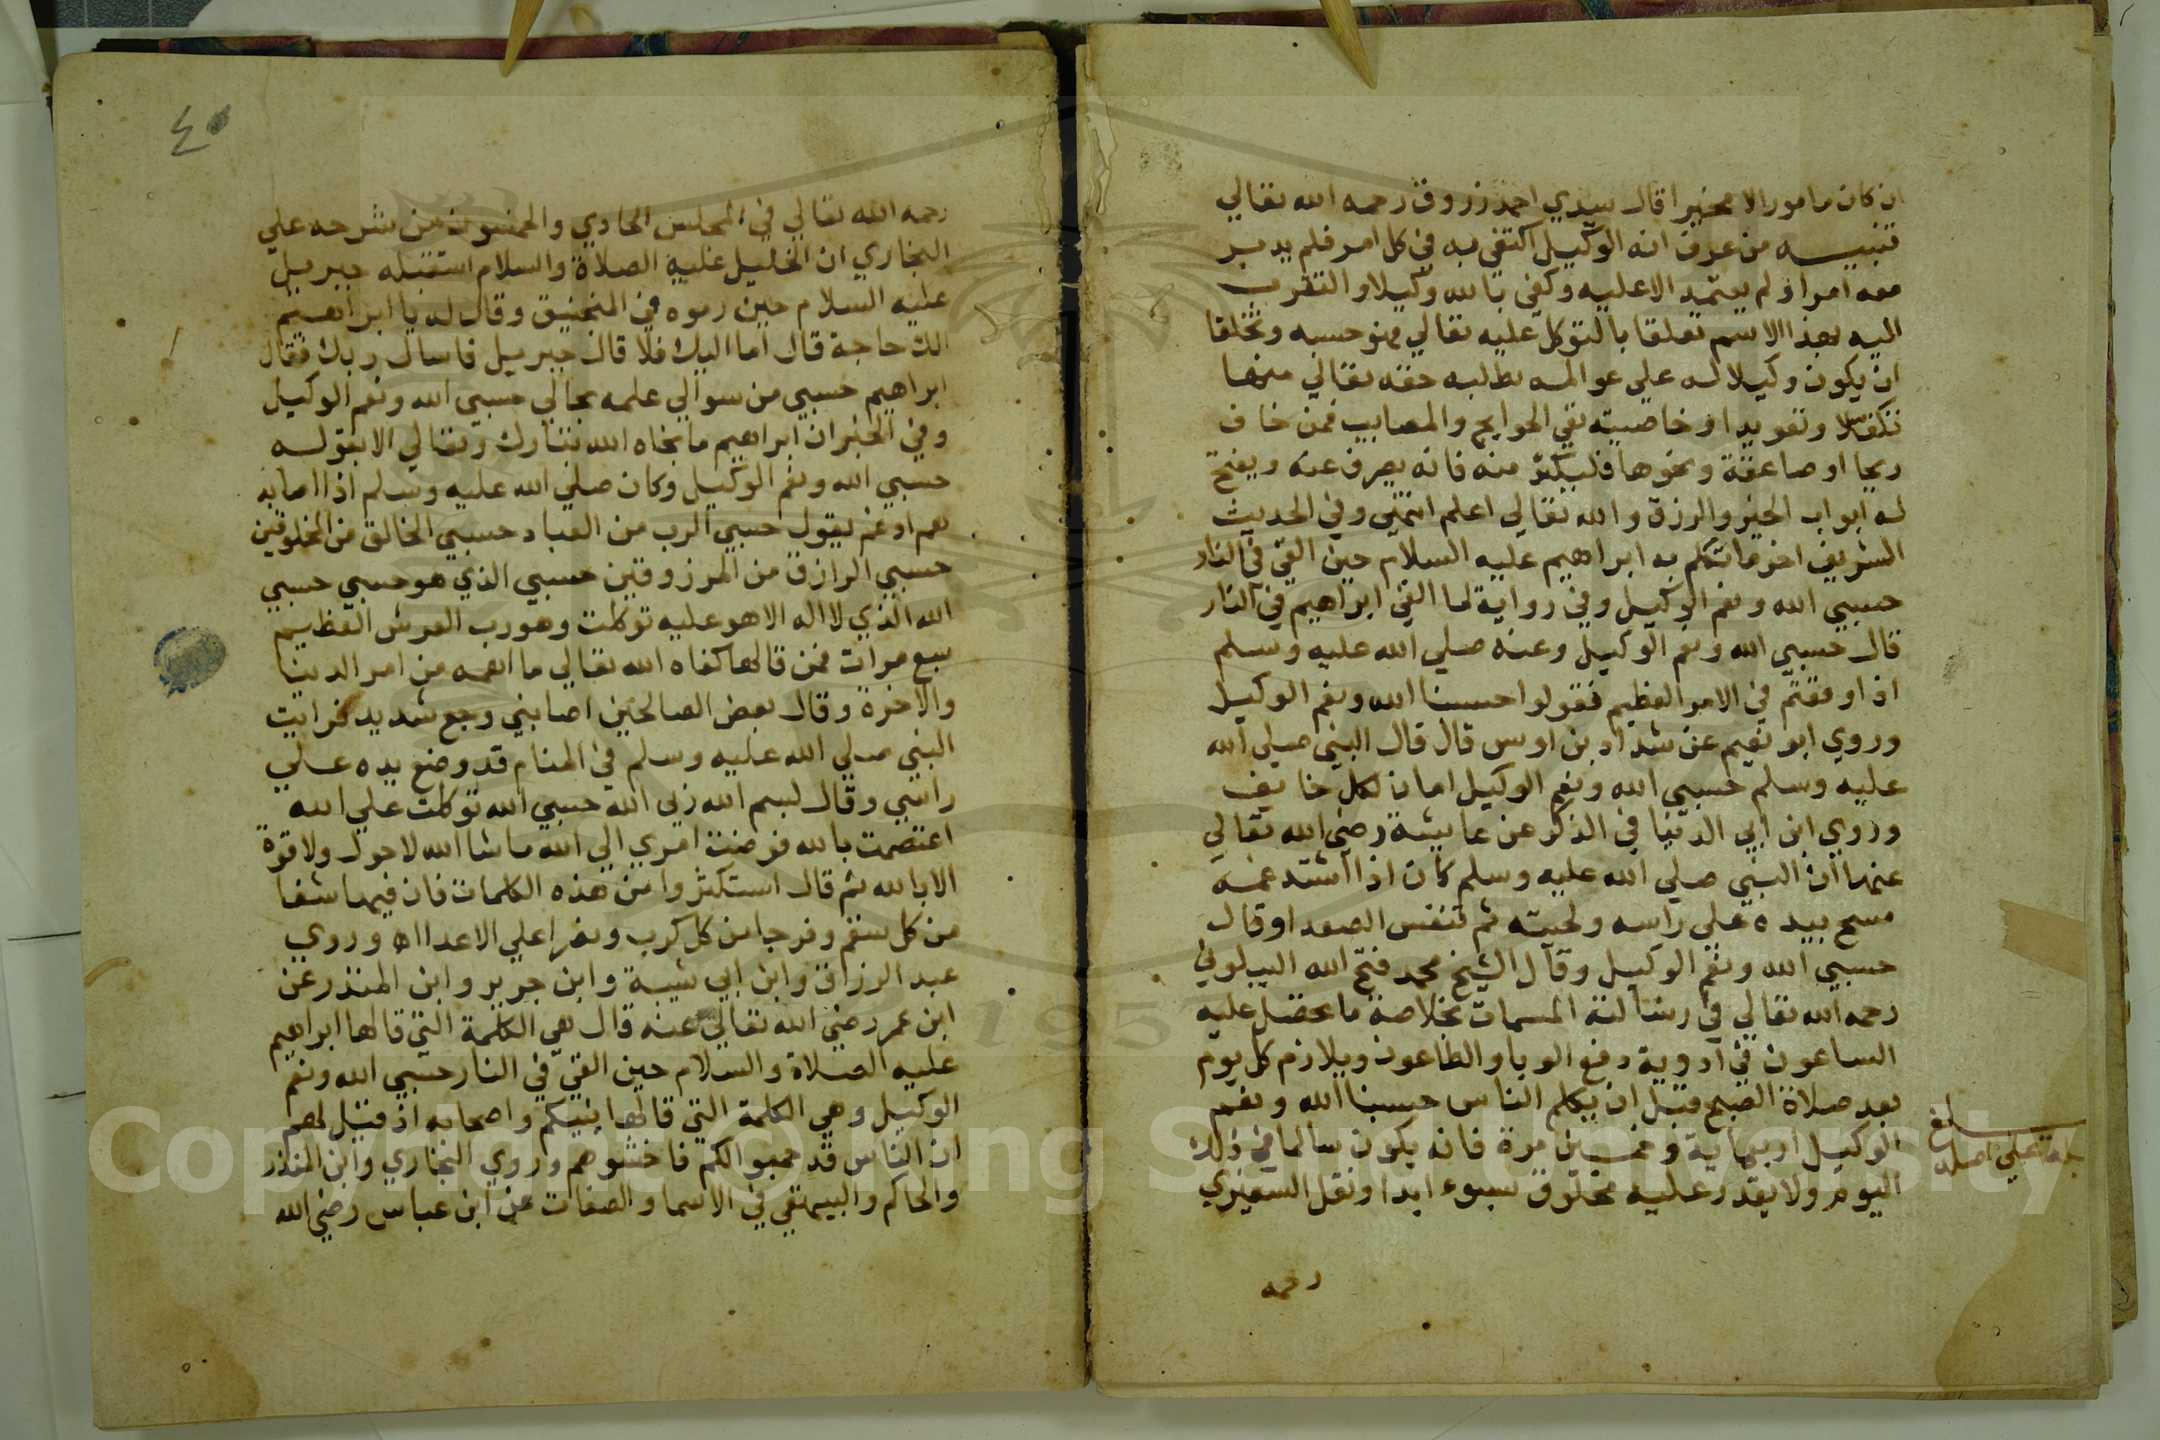 ان كان مامورا لا مخيرا قال سيدي احمد زروق رحمه الله تعالي
تنبيـه من عرف انه الوكيل اكتفي به في كل امر فلم يدبر
معه امرا ولم يعتمد الا عليه وكفي بالله وكيلا والتقرب
اليه بهذا الاسم تعلقا بالتوكل عليه تعالي فهو حسبه وتخلقا
ان يكون وكيلا له علي عوالمه بطلبه حقه تعالي منها
تكفلا وتفويدا وخاصيته نفي الحوايج والمصايب فمن خاف
ريحا او صاعقة ونحوها فليكثر منه فانه يصرف عنه ويفتح
له ابواب الخير والرزق والله تعالي اعلم انتهي وفي الحديث
الشريف اخر ما تكلم به ابراهيم عليه السلام حين القي في النار
حسبي الله ونعم الوكيل وفي رواية لما القي ابراهيم في النار
قال حسبي الله ونعم الوكيل وعنه صلي الله عليه وسلم
اذا وقعتم في الامر العظيم فقولوا حسبنا الله ونعم الوكيل
وروي ابو نعيم عن شداد بن اوس قال قال النبي صلي الله
عليه وسلم حسبي الله ونعم الوكيل امان لكل خايف
وروي ابن ابي الدنيا في الذكر عن عايشة رضي الله تعالي
عنها ان النبي صلي الله عليه وسلم كان اذا اشتد غمه
مسح بيده علي راسه ولحيته ثم تنفس الصعدا وقال
حسبي الله ونعم الوكيل وقال الشيخ محمد فتح الله البيلوني
رحمه الله تعالي في رسالته المسمات بخلاصة ما يحصل عليه
الساعون في ادوية دفع الوبا والطاعون ويلازم كل يوم
بعد صلاة الصبح قبل ان يكلم الناس حسبنا الله ونعم
الوكيل اربعماية وخمسين مرة فانه يكون سالما في ذلك
اليوم ولا يقدر عليه مخلوق بسوء ابدا ونقل السفيري
بلغ
علي اصله
رحمه
٤٠
رحمه الله تعالي في المجلس الحادي والخمسون من شرحه علي
البخاري ان الخليل عليه الصلاة والسلام استقبله جبريل
عليه السلام حين رموه في المنجنيق وقال له يا ابراهيم
الك حاجة قال اما اليك فلا قال جبريل فاسال ربك فقال
ابراهيم حسبي من سوالي علمه بحالي حسبي الله ونعم الوكيل
وفي الخبر ان ابراهيم ما نجاه الله تبارك وتعالي الا بقوله
حسبي الله ونعم الوكيل وكان صلي الله عليه وسلم اذا اصابه
هم او غم يقول حسبي الرب من العباد حسبي الخالق من المخلوقين
حسبي الرازق من المرزوقين حسبي الذي هو حسبي حسبي
الله الذي لا اله الا هو عليه توكلت وهو رب العرش العظيم
سبع مرات فمن قالها كفاه الله تعالي ما اهمه من امر الدنيا
والاخرة وقال بعض الصالحين اصابني وجع شديد فرايت
النبي صلي الله عليه وسلم في المنام قد وضع يده علي
راسي وقال بسم الله ربي الله حسبي الله توكلت علي الله
اعتصمت بالله فوضت امري الي الله ما شا الله لا حول ولا قوة
الا بالله ثم قال استكثروا من هذه الكلمات فان فيها شفا
من كل سقم وفرجا من كل كرب ونصرا علي الاعدا اه وروي
عبد الرزاق وابن ابي شيبة وابن جرير وابن المنذر عن
ابن عمر رضي الله تعالي عنه قال هي الكلمة التي قالها ابراهيم
عليه الصلاة والسلام حين القي في النار حسبي الله ونعم
الوكيل وهي الكلمة التي قالها نبيكم واصحابه اذ قيل لهم
ان الناس قد جمعوا لكم فاخشوهم وروي البخاري وابن المنذر
والحاكم والبيهقي في الاسما والصفات عن ابن عباس رضي الله